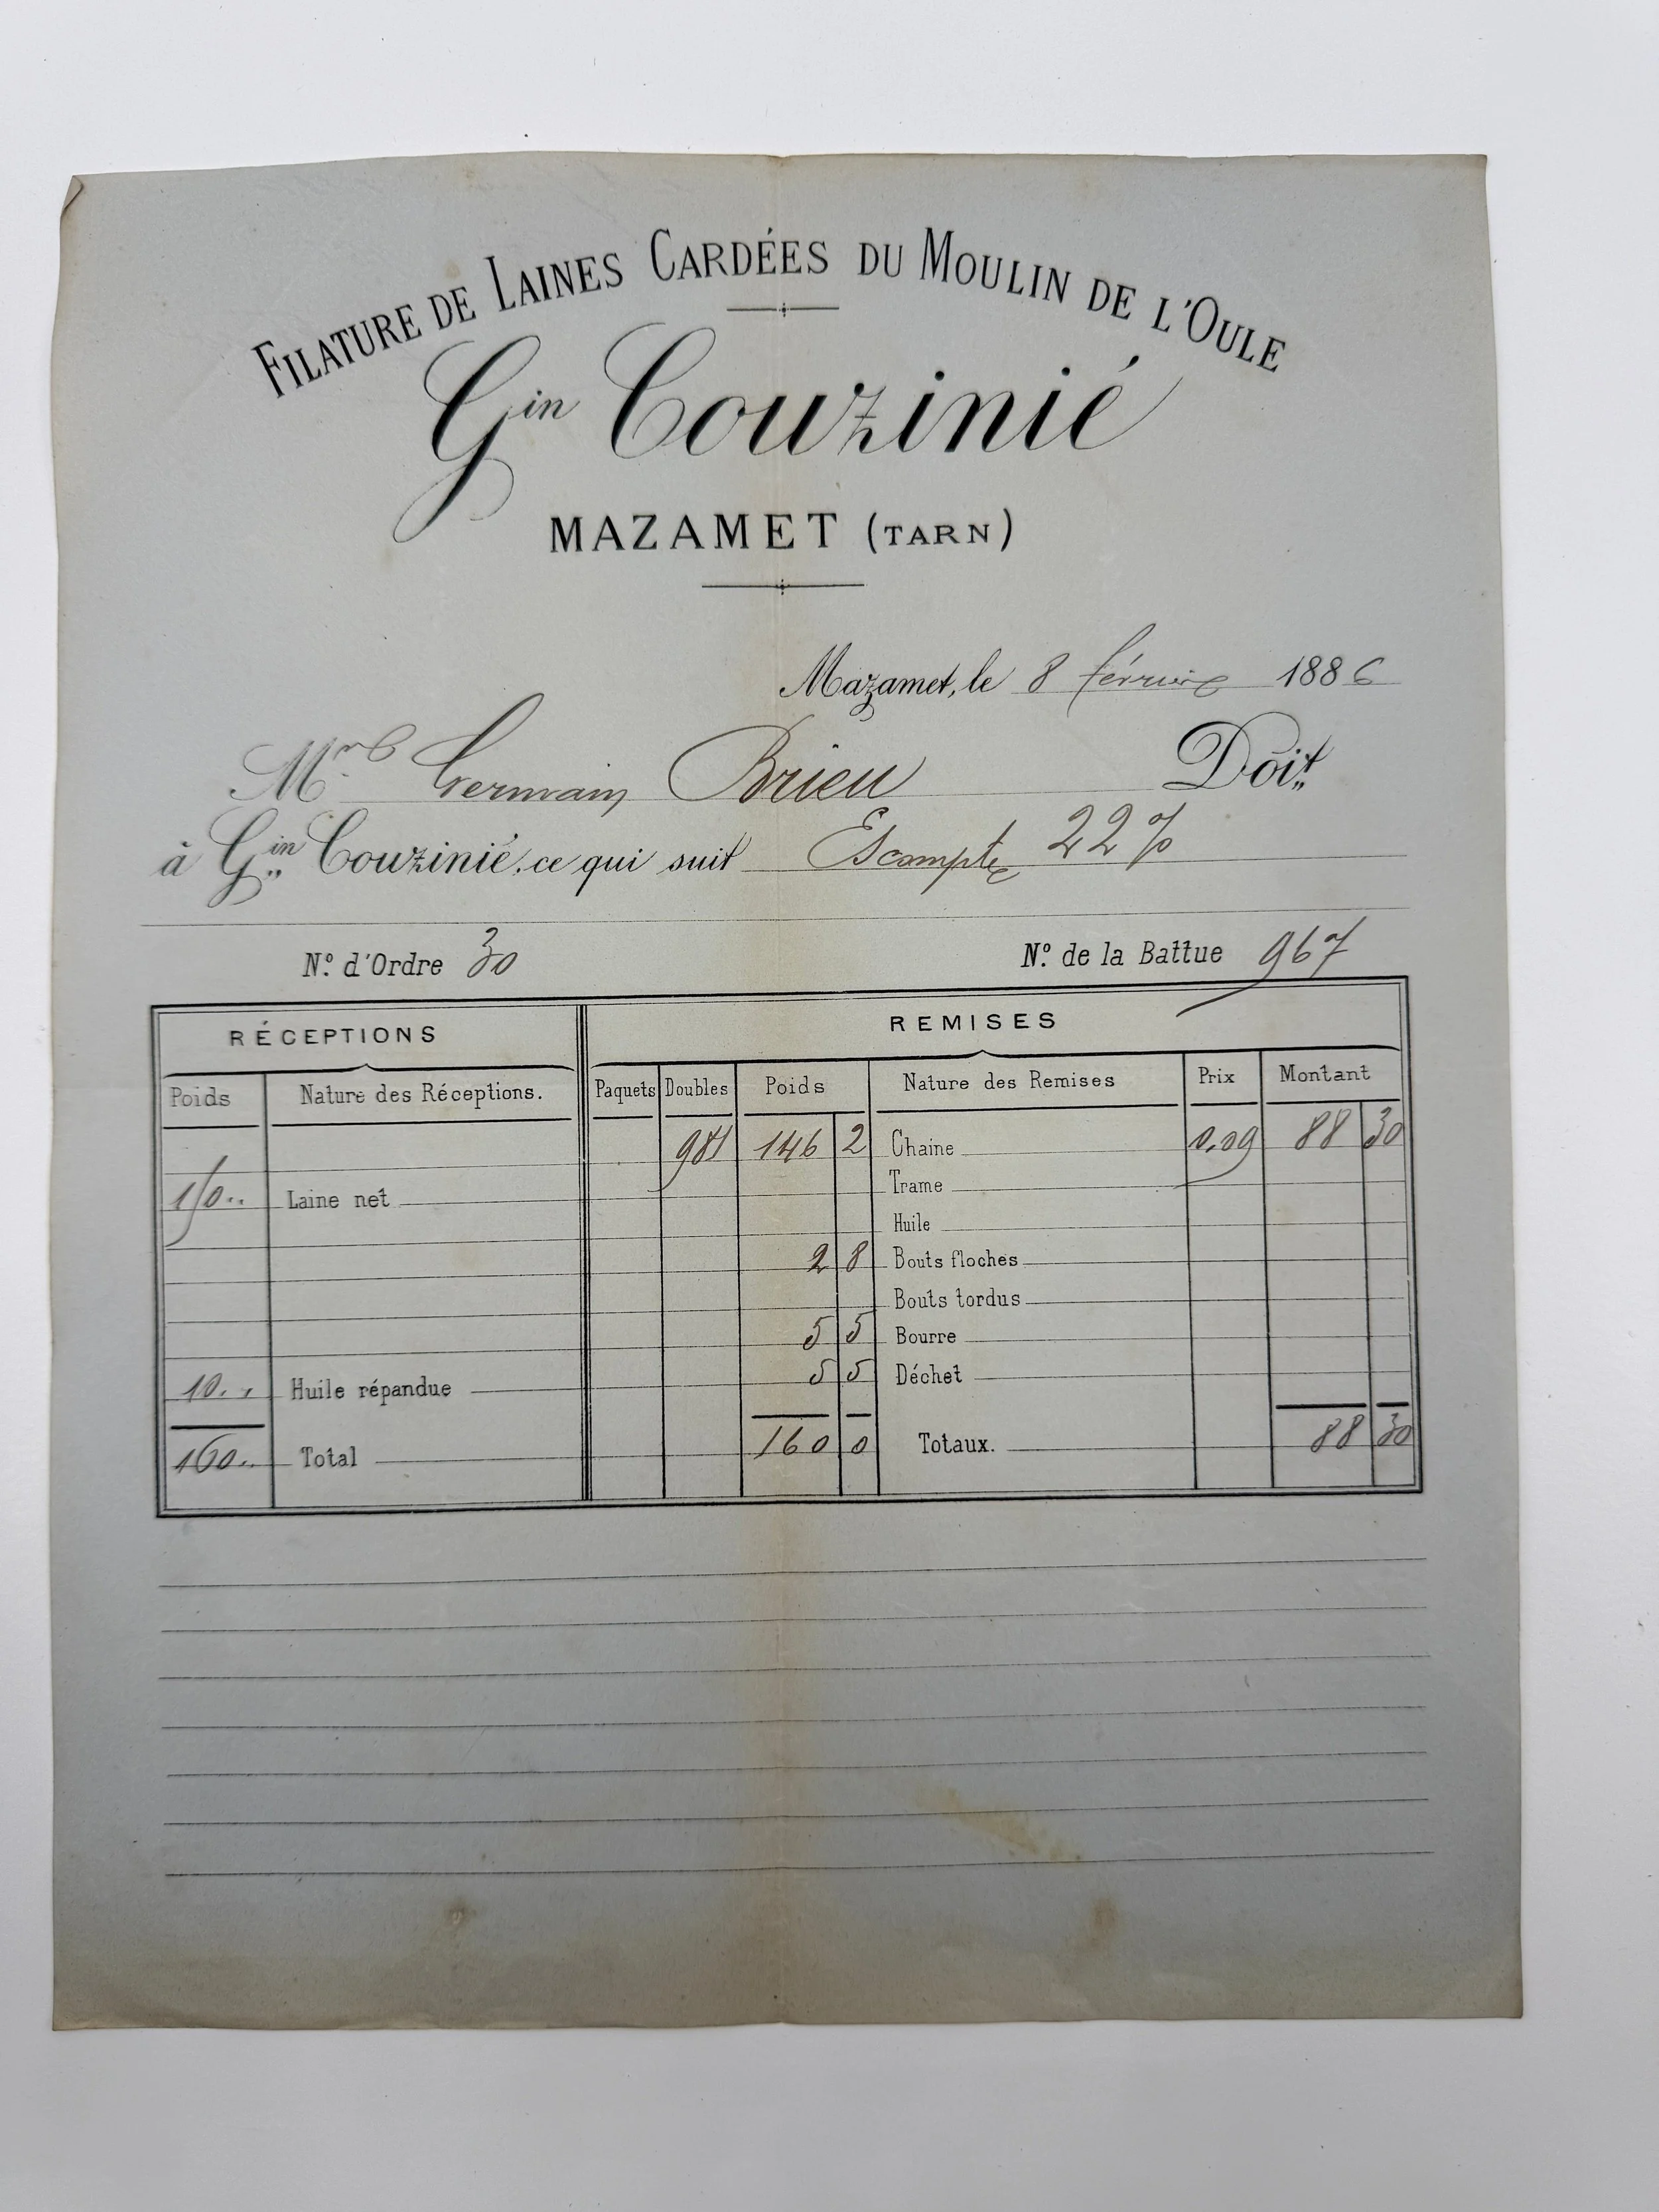 FILATURE DE LAINES CARDÉES DU MOULIN DE L'OULE
Gin Couzinié
MAZAMET (TARN)
Mazamet, le 8 février 1886
Germain Brieu Doit
à Gin Couzinié, ce qui suit Escompte 22 %
N° d'Ordre 30 N° de la Battue 967
RÉCEPTIONS REMISES
Poids Nature des Réceptions. Paquets Doubles Poids Nature des Remises Prix Montant
981 146 2 Chaine 0.09 88 30
150 .. Laine net Trame
Huile
2 8 Bouts floches
Bouts tordus
5 5 Bourre
10 .. Huile répandue 5 5 Déchet
160 .. Total 160 0 Totaux. 88 30